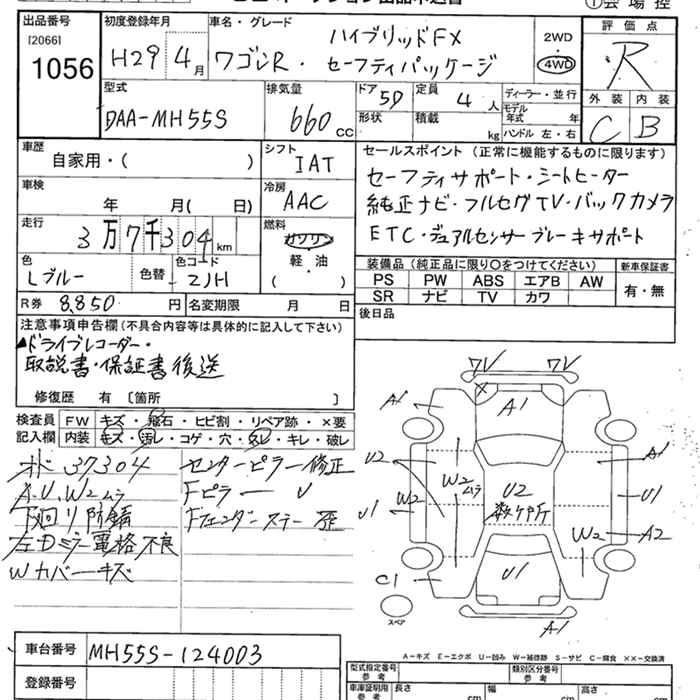 出品番号
[2066]
1056
初度登録年月
H29年4月
車名・グレード
ハイブリッドFX
ワゴンR・セーフティパッケージ
2WD
4WD
評価点
R
外装 内装
C B
型式
DAA-MH55S
排気量
660 CC
ドア 5D
形状
定員 4 人
積載 kg
ディーラー・並行
モデル年式 年
ハンドル 左・右
車歴
自家用・( )
シフト
IAT
車検
年 月( 日)
冷房
AAC
走行
3万7千304km
燃料
ガソリン
軽・油
( )
色
Lブルー
色替
色コード
ZJH
R券 8,850 円
名変期限 月 日
セールスポイント (正常に機能するものに限ります)
セーフティサポート・シートヒーター
純正ナビ・フルセグTV・バックカメラ
ETC・デュアルセンサーブレーキサポート
装備品 (純正品に限り○をつけてください)
新車保証書
PS PW ABS エアB AW
SR ナビ TV カワ
有・無
後日品
注意事項申告欄(不具合内容等は具体的に記入して下さい)
▲ドライブレコーダー・
取説書・保証書後送
修復歴 有 〔箇所 〕
検査員
記入欄
FW キズ・飛石・ヒビ割・リペア跡・×要
内装 キズ・汚レ・コゲ・穴・タレ・キレ・破レ
オド 37304
A.U.W2ムラ
下回り防錆
左Dミラー電格不良
Wカバーキズ
センターピラー修正
Fピラー U
Fフェンダーステー歪
7V 7V
A1 A1
U2 A1
W2ムラ
U1 W2
U2
数ヶ所
U1
W2 A2
C1 U1
A1
スペア
A−キズ E−エクボ U−凹み W−補修跡 S−サビ C−腐食 ××−交換済
車台番号
MH55S-124003
登録番号
型式指定番号
参考
類別区分番号
参考
車庫証明用
参考
長さ cm
幅 cm
高さ cm